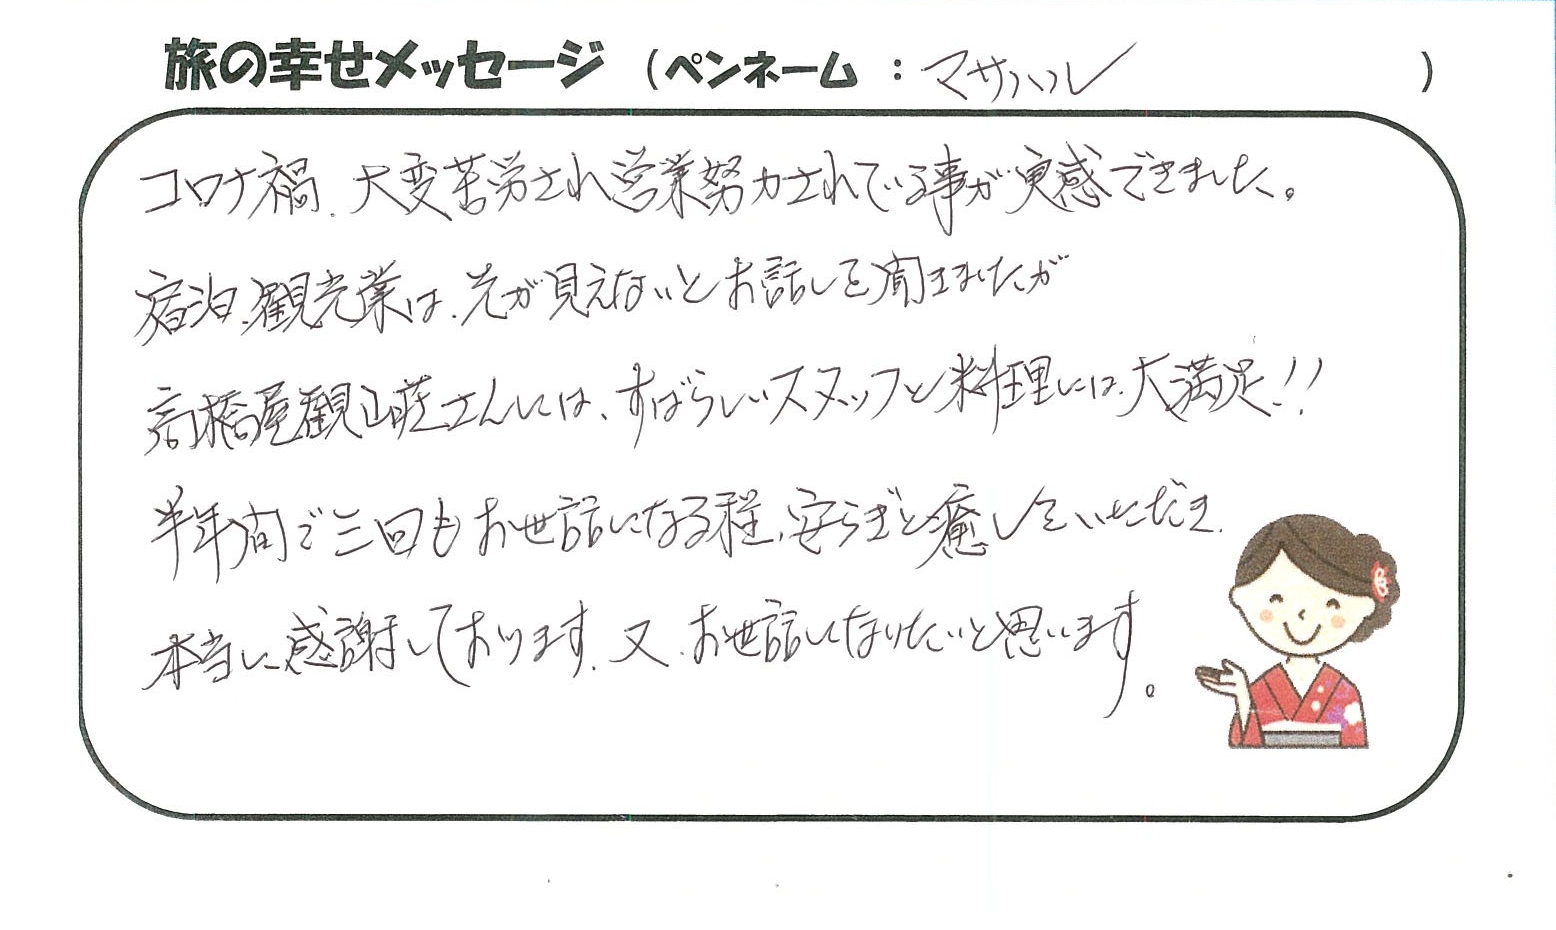 旅の幸せメッセージ (ペンネーム : マサハル )
コロナ禍、大変苦労され営業努力されている事が実感できました。
宿泊、観光業は、先が見えないとお話しを聞きましたが
高橋屋観山荘さんには、すばらしいスタッフと料理には、大満足!!
半年間で三回もお世話になる程、安らぎと癒していただき、
本当に感謝しております、又、お世話になりたいと思います。